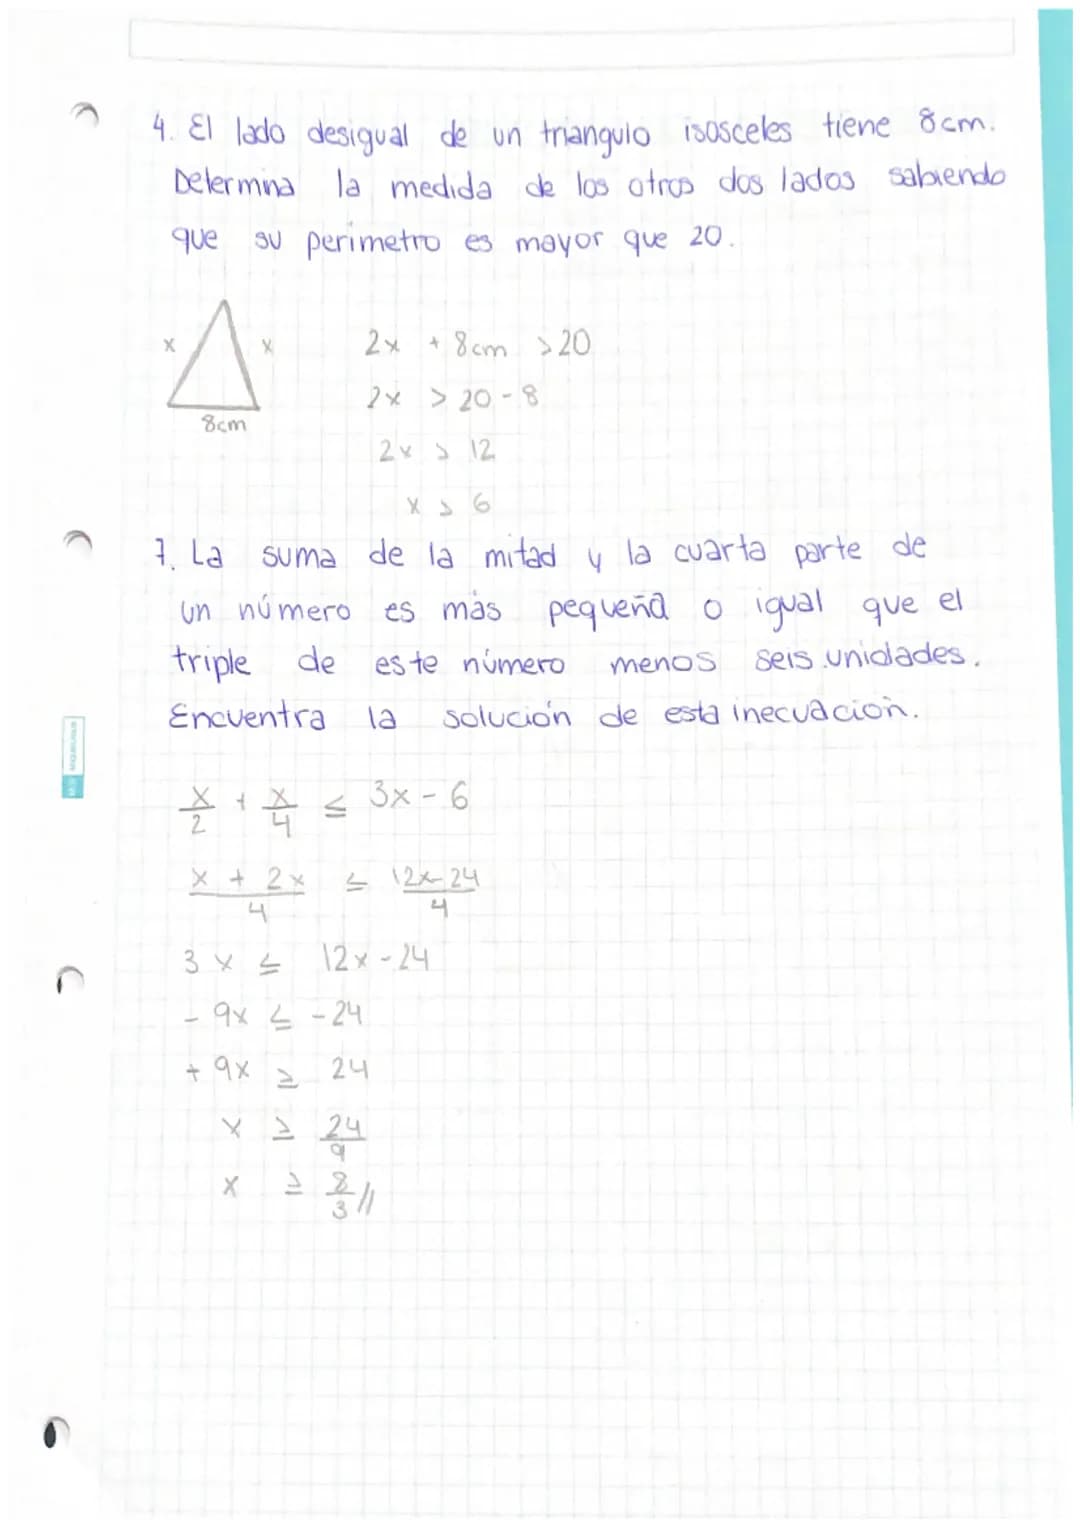 4. El lado desigual de un triangulo isósceles tiene 8cm.
Determina la medida de los otros dos lados sabiendo
que su perimetro es mayor que 20.
x x
8cm
2x + 8cm > 20
2x > 20 - 8
2x > 12
x > 6
7. La suma de la mitad y la cuarta parte de
un número es más pequeña o igual que el
triple de este número menos seis unidades.
Encuentra la solución de esta inecuación.
x/2 + x/4 ≤ 3x - 6
x + 2x/4 ≤ 12x-24/4
3x ≤ 12x - 24
- 9x ≤ - 24
+ 9x ≥ 24
x ≥ 24/9
x ≥ 8/3 //